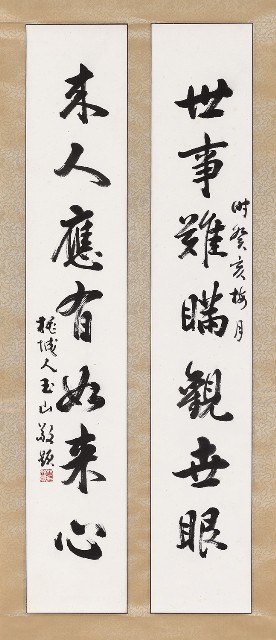 世事難瞞觀世眼
時癸亥梅月
来人應有如来心
桃城人玉山敬題